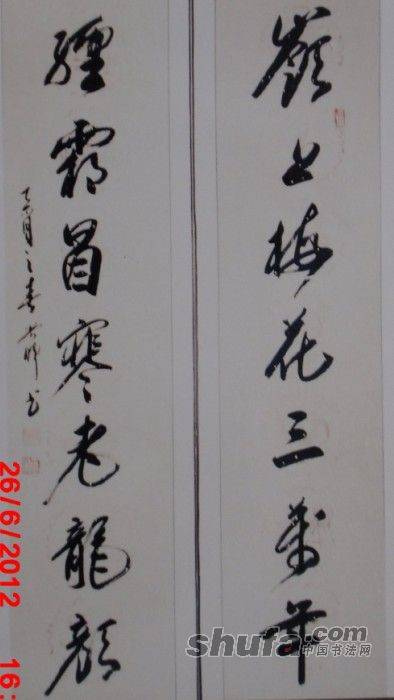 嶺上梅花三萬年
經霜冒寒老龍顏
之春 书
26/6/2012 16:
shufa.com
中国书法网